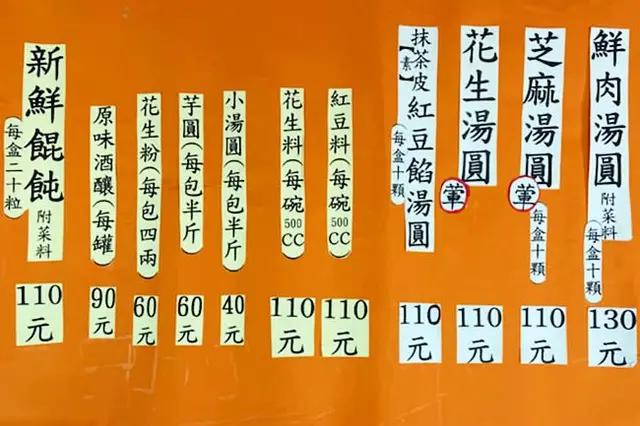 鮮肉湯圓
附菜料
每盒十顆
130元
芝麻湯圓
葷
每盒十顆
110元
花生湯圓
葷
110元
抹茶皮
【素】
紅豆餡湯圓
每盒十顆
110元
紅豆料(每碗500CC
110元
花生料(每碗500CC
110元
小湯圓(每包半斤
40元
芋圓(每包半斤
60元
花生粉(每包四兩
60元
原味酒釀(每罐
90元
新鮮餛飩
附菜料
每盒二十粒
110元